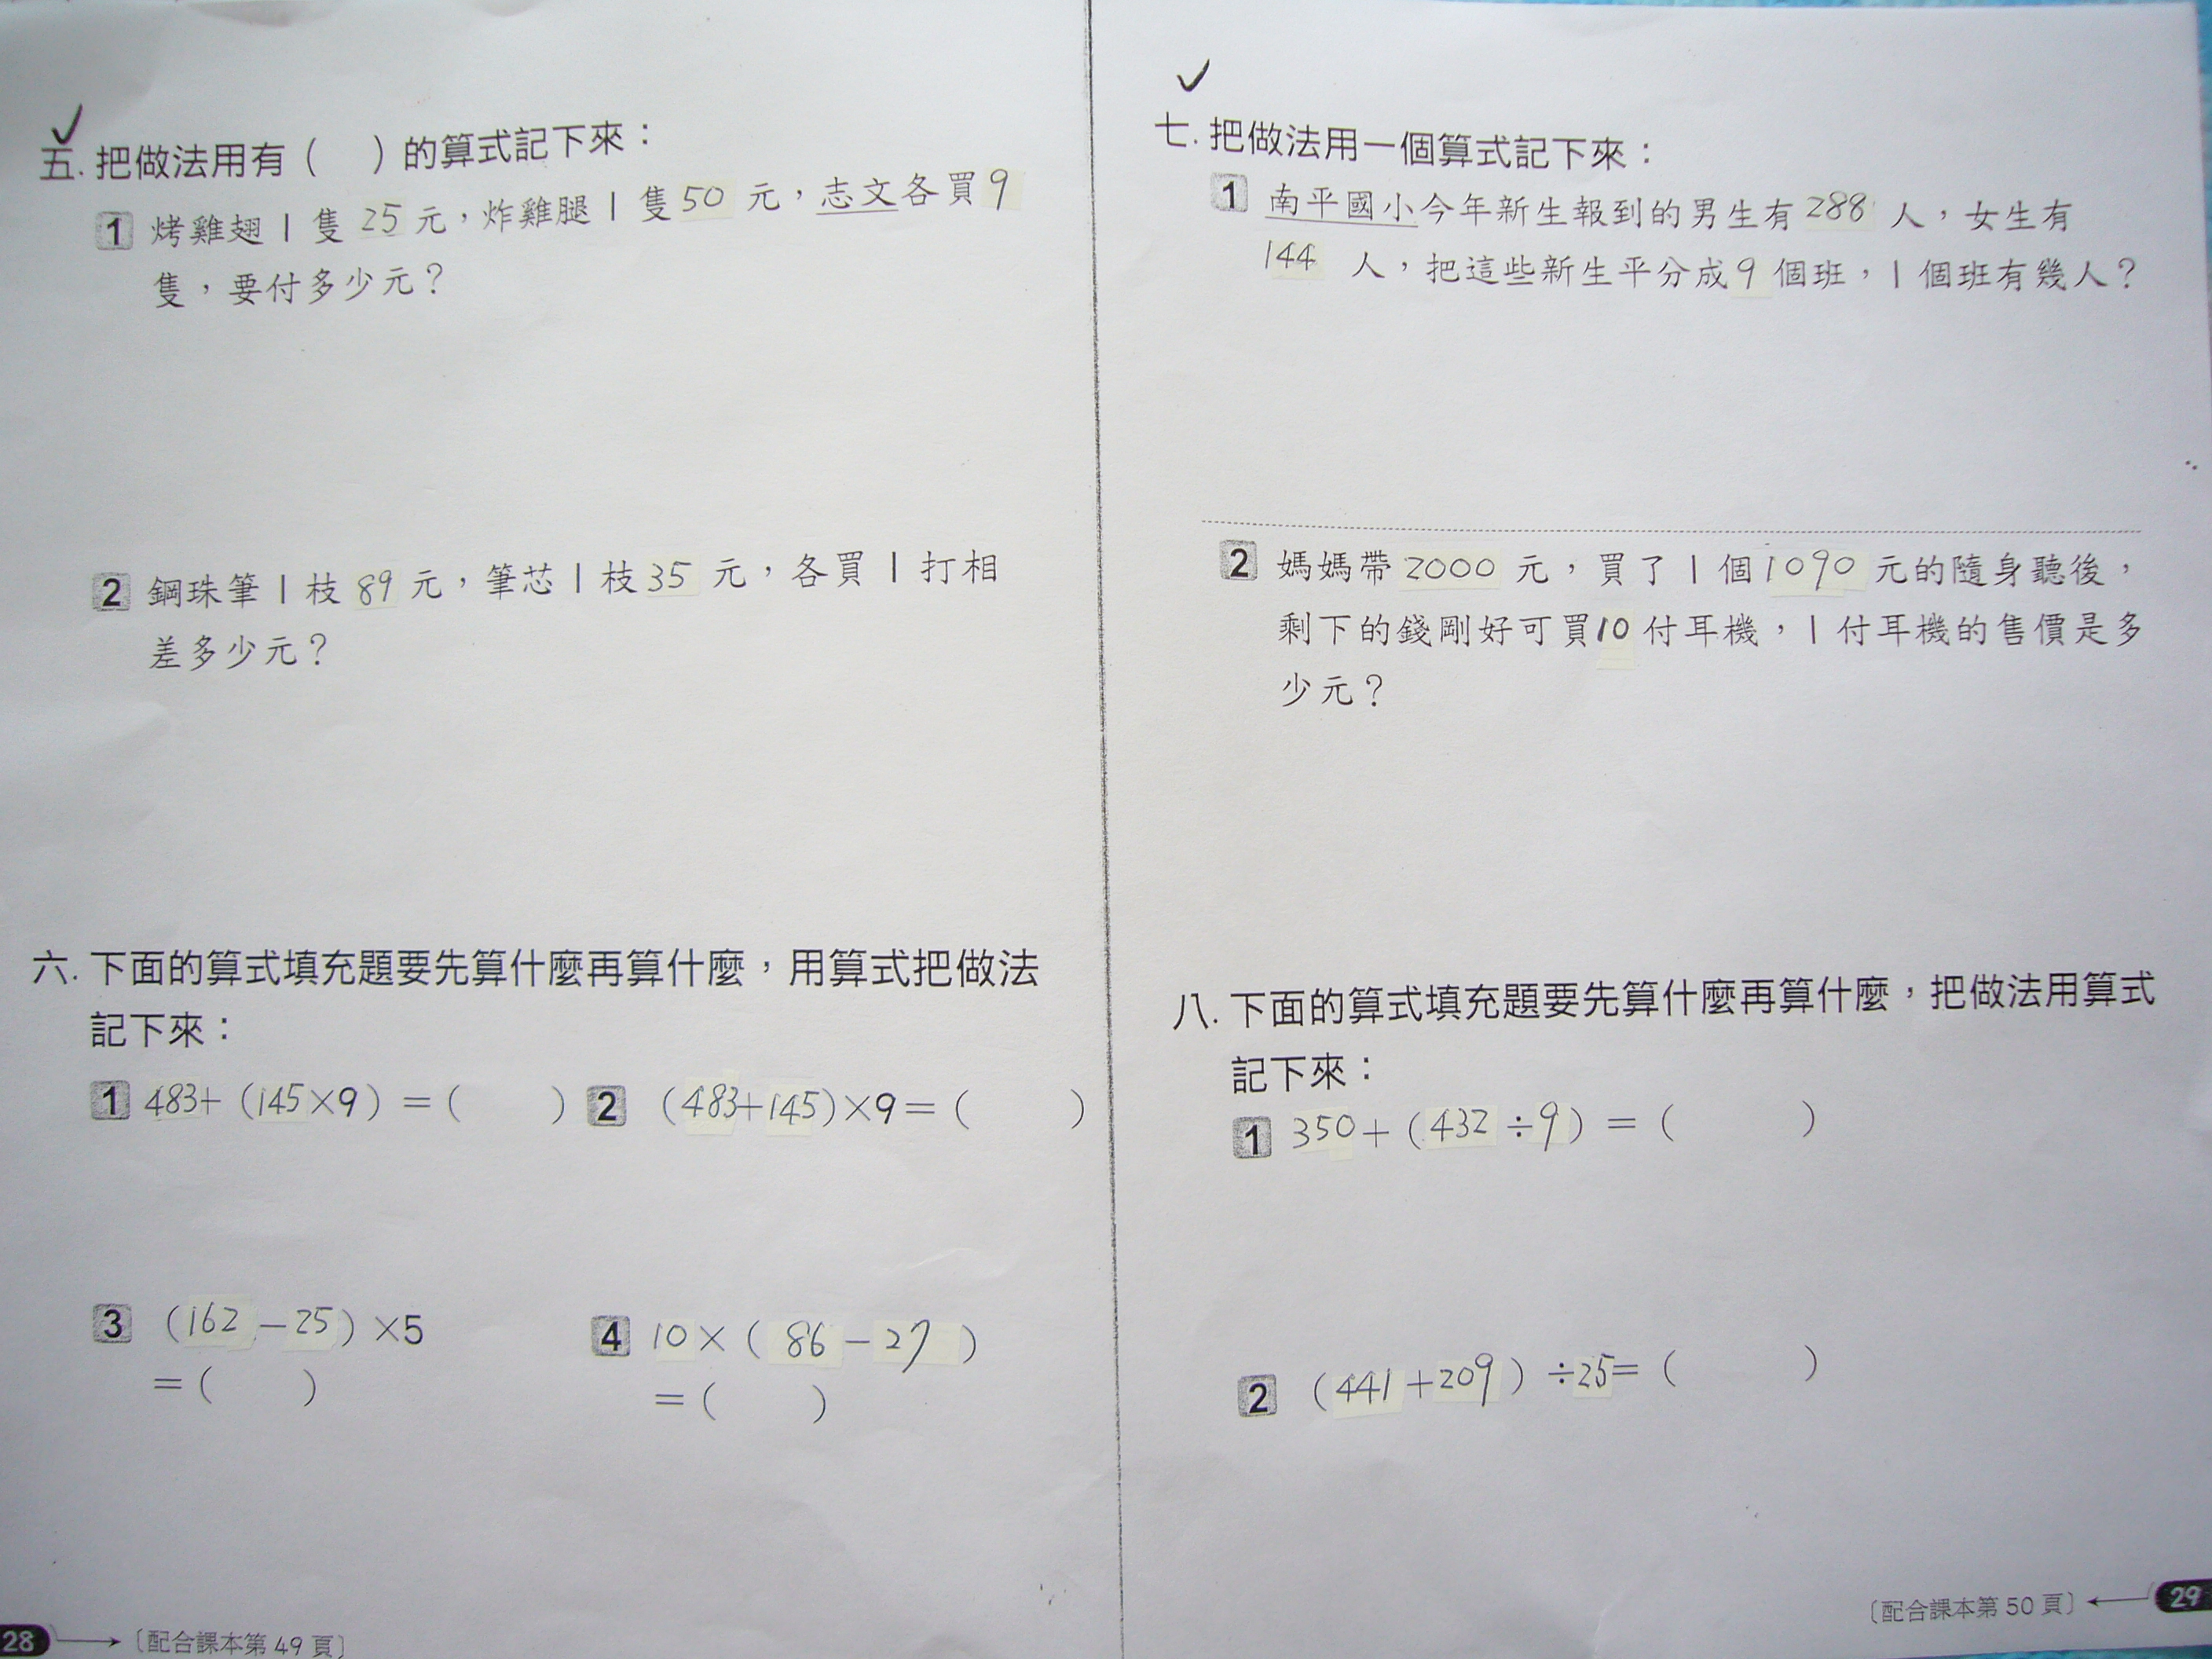 五. 把做法用有（　）的算式記下來：
1 烤雞翅1隻25元，炸雞腿1隻50元，志文各買9
隻，要付多少元？
2 鋼珠筆1枝89元，筆芯1枝35元，各買1打相
差多少元？
六. 下面的算式填充題要先算什麼再算什麼，用算式把做法
記下來：
1 483+（145×9）=（　　） 2 （483+145）×9=（　　）
3 （162-25）×5 4 10×（86-27）
=（　　） =（　　）
28 〔配合課本第49頁〕
七. 把做法用一個算式記下來：
1 南平國小今年新生報到的男生有288人，女生有
144人，把這些新生平分成9個班，1個班有幾人？
2 媽媽帶2000元，買了1個1090元的隨身聽後，
剩下的錢剛好可買10付耳機，1付耳機的售價是多
少元？
八. 下面的算式填充題要先算什麼再算什麼，把做法用算式
記下來：
1 350+（432÷9）=（　　）
2 （441+209）÷25=（　　）
〔配合課本第50頁〕 29